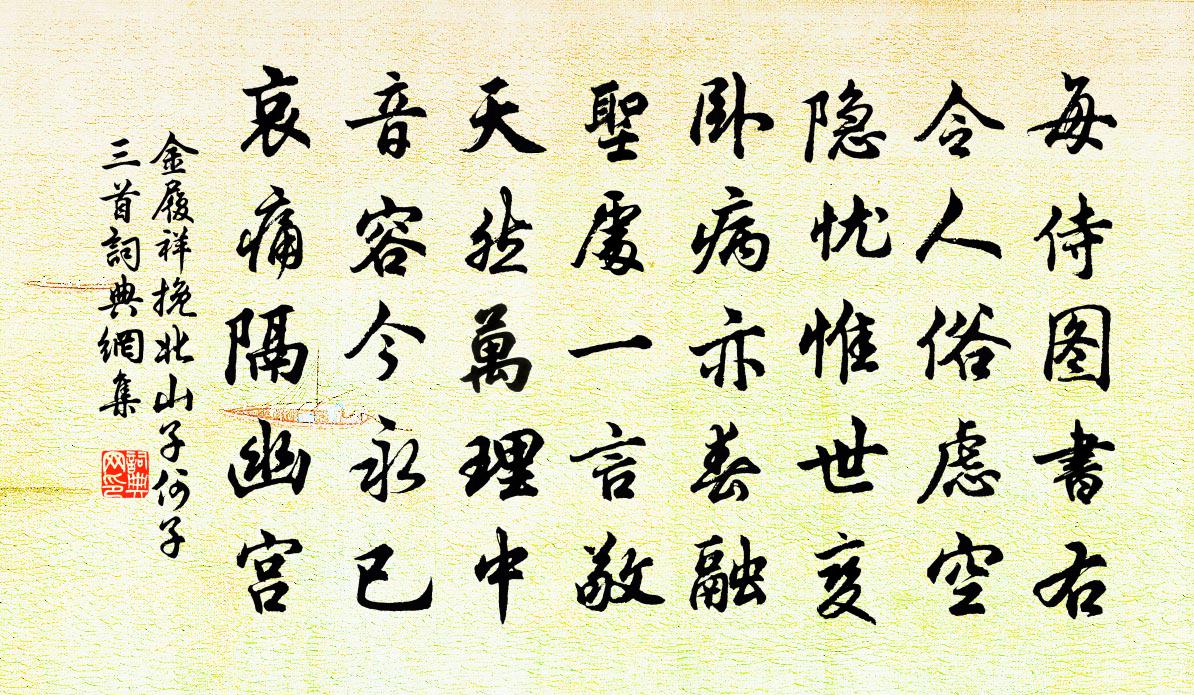 每侍图書右
令人俗虑空
隐忧惟世变
卧病亦春融
聖處一言敬
天然萬理中
音容今永已
哀痛隔幽宫
金履祥挽北山子何子
三首詞典網集
詞典网印